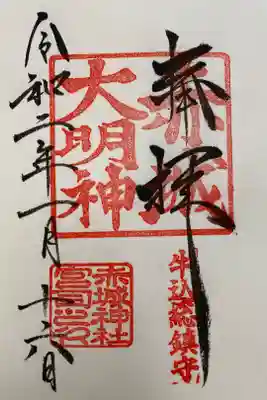 奉拝
赤城
大明神
牛込総鎮守
令和二年一月十六日
赤城神社
宮司之印